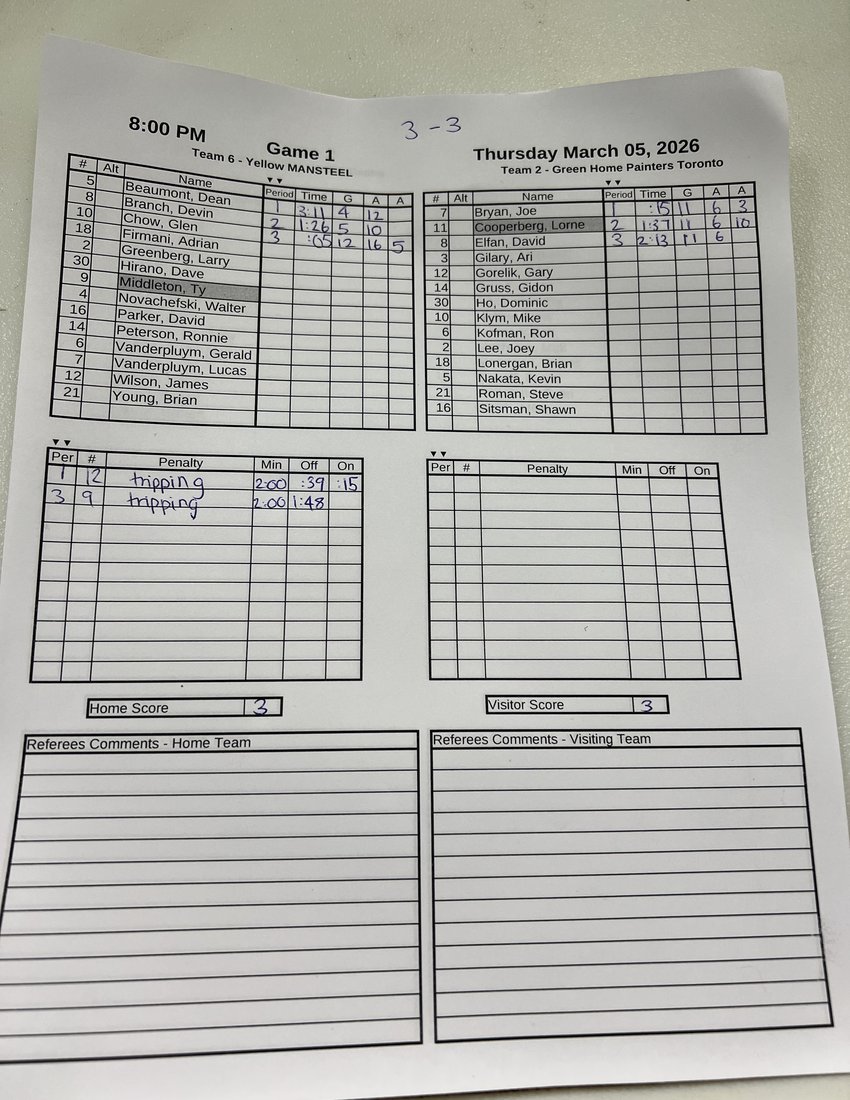 3-3
8:00 PM
Game 1
Thursday March 05, 2026
Team 6 - Yellow MANSTEEL
# Alt Name Period Time G A A
5 Beaumont, Dean 1 3:11 4 12
8 Branch, Devin 2 1:26 5 10
10 Chow, Glen 3 :05 12 16 5
18 Firmani, Adrian
2 Greenberg, Larry
30 Hirano, Dave
9 Middleton, Ty
4 Novachefski, Walter
16 Parker, David
14 Peterson, Ronnie
6 Vanderpluym, Gerald
7 Vanderpluym, Lucas
12 Wilson, James
21 Young, Brian
Team 2 - Green Home Painters Toronto
# Alt Name Period Time G A A
7 Bryan, Joe 1 :15 11 6 3
11 Cooperberg, Lorne 2 1:37 11 6 10
8 Elfan, David 3 2:13 11 6
3 Gilary, Ari
12 Gorelik, Gary
14 Gruss, Gidon
30 Ho, Dominic
10 Klym, Mike
6 Kofman, Ron
2 Lee, Joey
18 Lonergan, Brian
5 Nakata, Kevin
21 Roman, Steve
16 Sitsman, Shawn
Per # Penalty Min Off On
1 12 tripping 2:00 :39 :15
3 9 tripping 2:00 1:48
Per # Penalty Min Off On
Home Score 3
Visitor Score 3
Referees Comments - Home Team
Referees Comments - Visiting Team